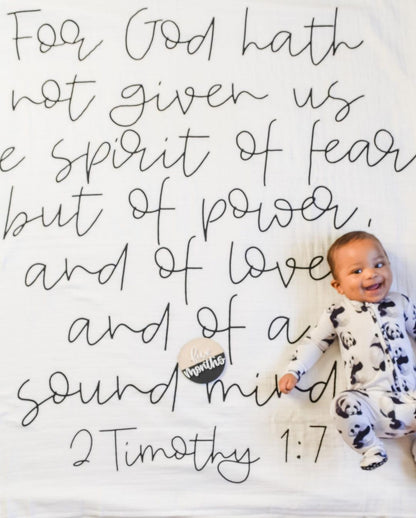 For God hath
not given us
e spirit of fear
but of power,
and of love
and of a
five
months
sound mind
2 Timothy 1:7